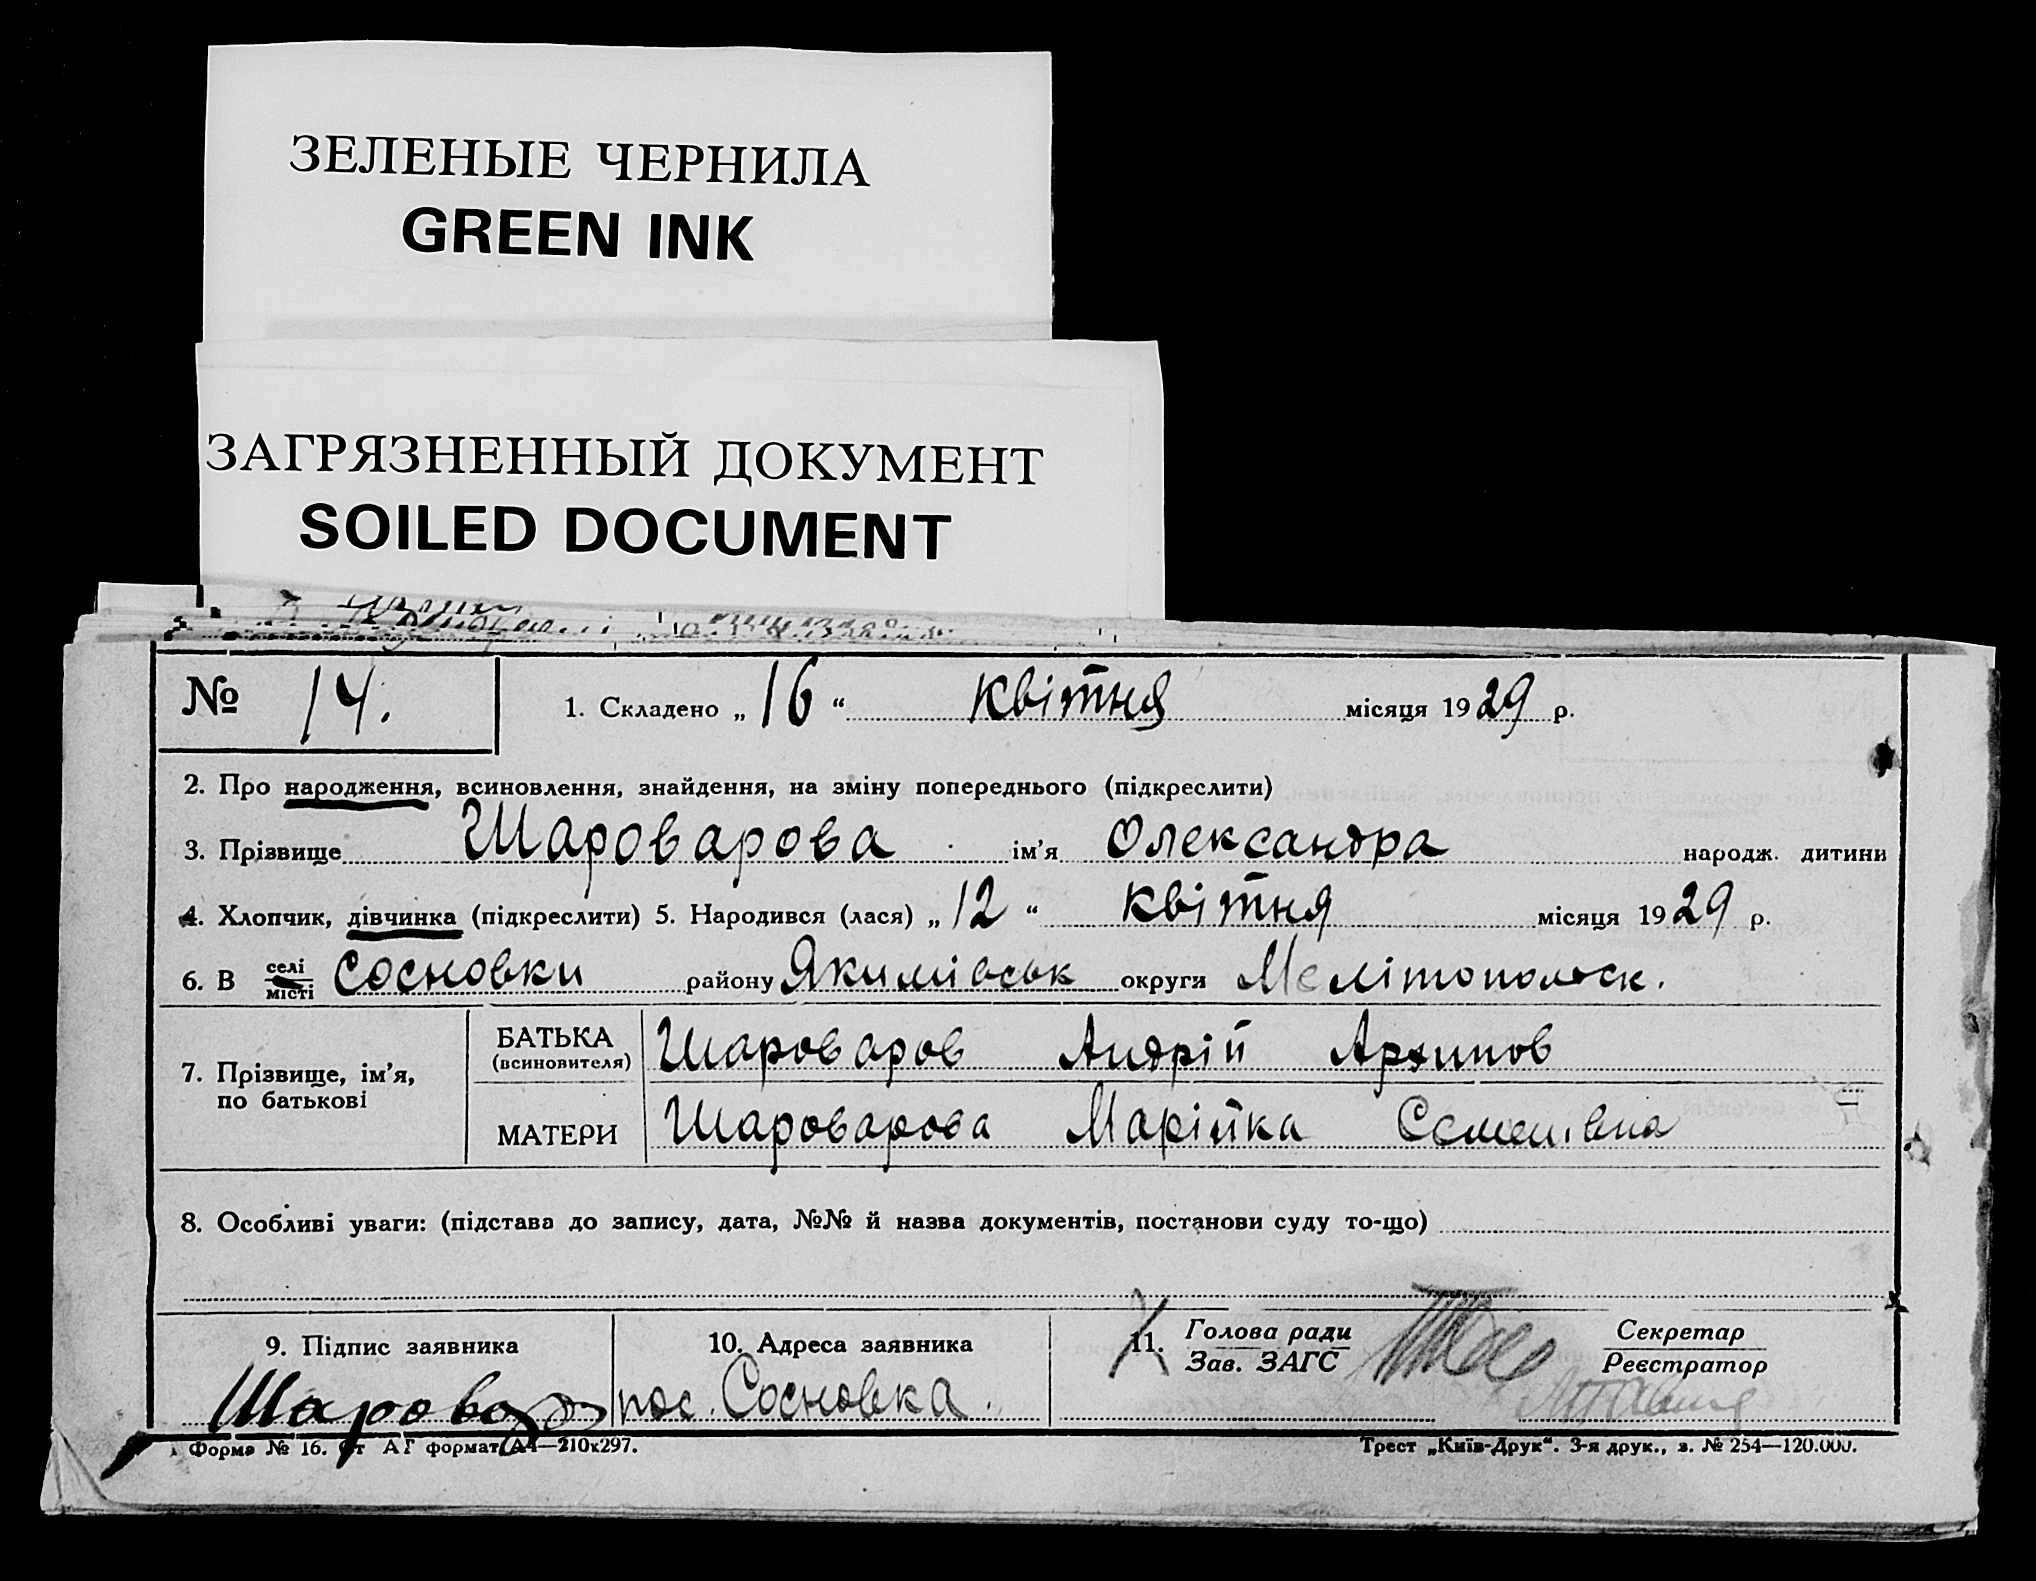 ЗЕЛЕНЫЕ ЧЕРНИЛА
GREEN INK
ЗАГРЯЗНЕННЫЙ ДОКУМЕНТ
SOILED DOCUMENT
№ 14. 1. Складено „16“ квітня місяця 1929 р.
2. Про народження, всиновлення, знайдення, на зміну попереднього (підкреслити)
3. Прізвище Шароварова ім’я Олександра народж. дитини
4. Хлопчик, дівчинка (підкреслити) 5. Народився (лася) „12“ квітня місяця 1929 р.
6. В селі місті Сосновки району Якимівськ округи Мелітопольск.
7. Прізвище, ім’я, по батькові
БАТЬКА (всиновителя) Шароваров Андрій Архипов
МАТЕРИ Шароварова Марійка Семенівна
8. Особливі уваги: (підстава до запису, дата, №№ й назва документів, постанови суду то-що)
9. Підпис заявника 10. Адреса заявника 11. Голова ради Секретар
Зав. ЗАГС Реєстратор
пос. Сосновка.
Форма № 16. Ст АГ формат А4—210х297. Трест „Київ-Друк“. 3-я друк., з. № 254—120.000.